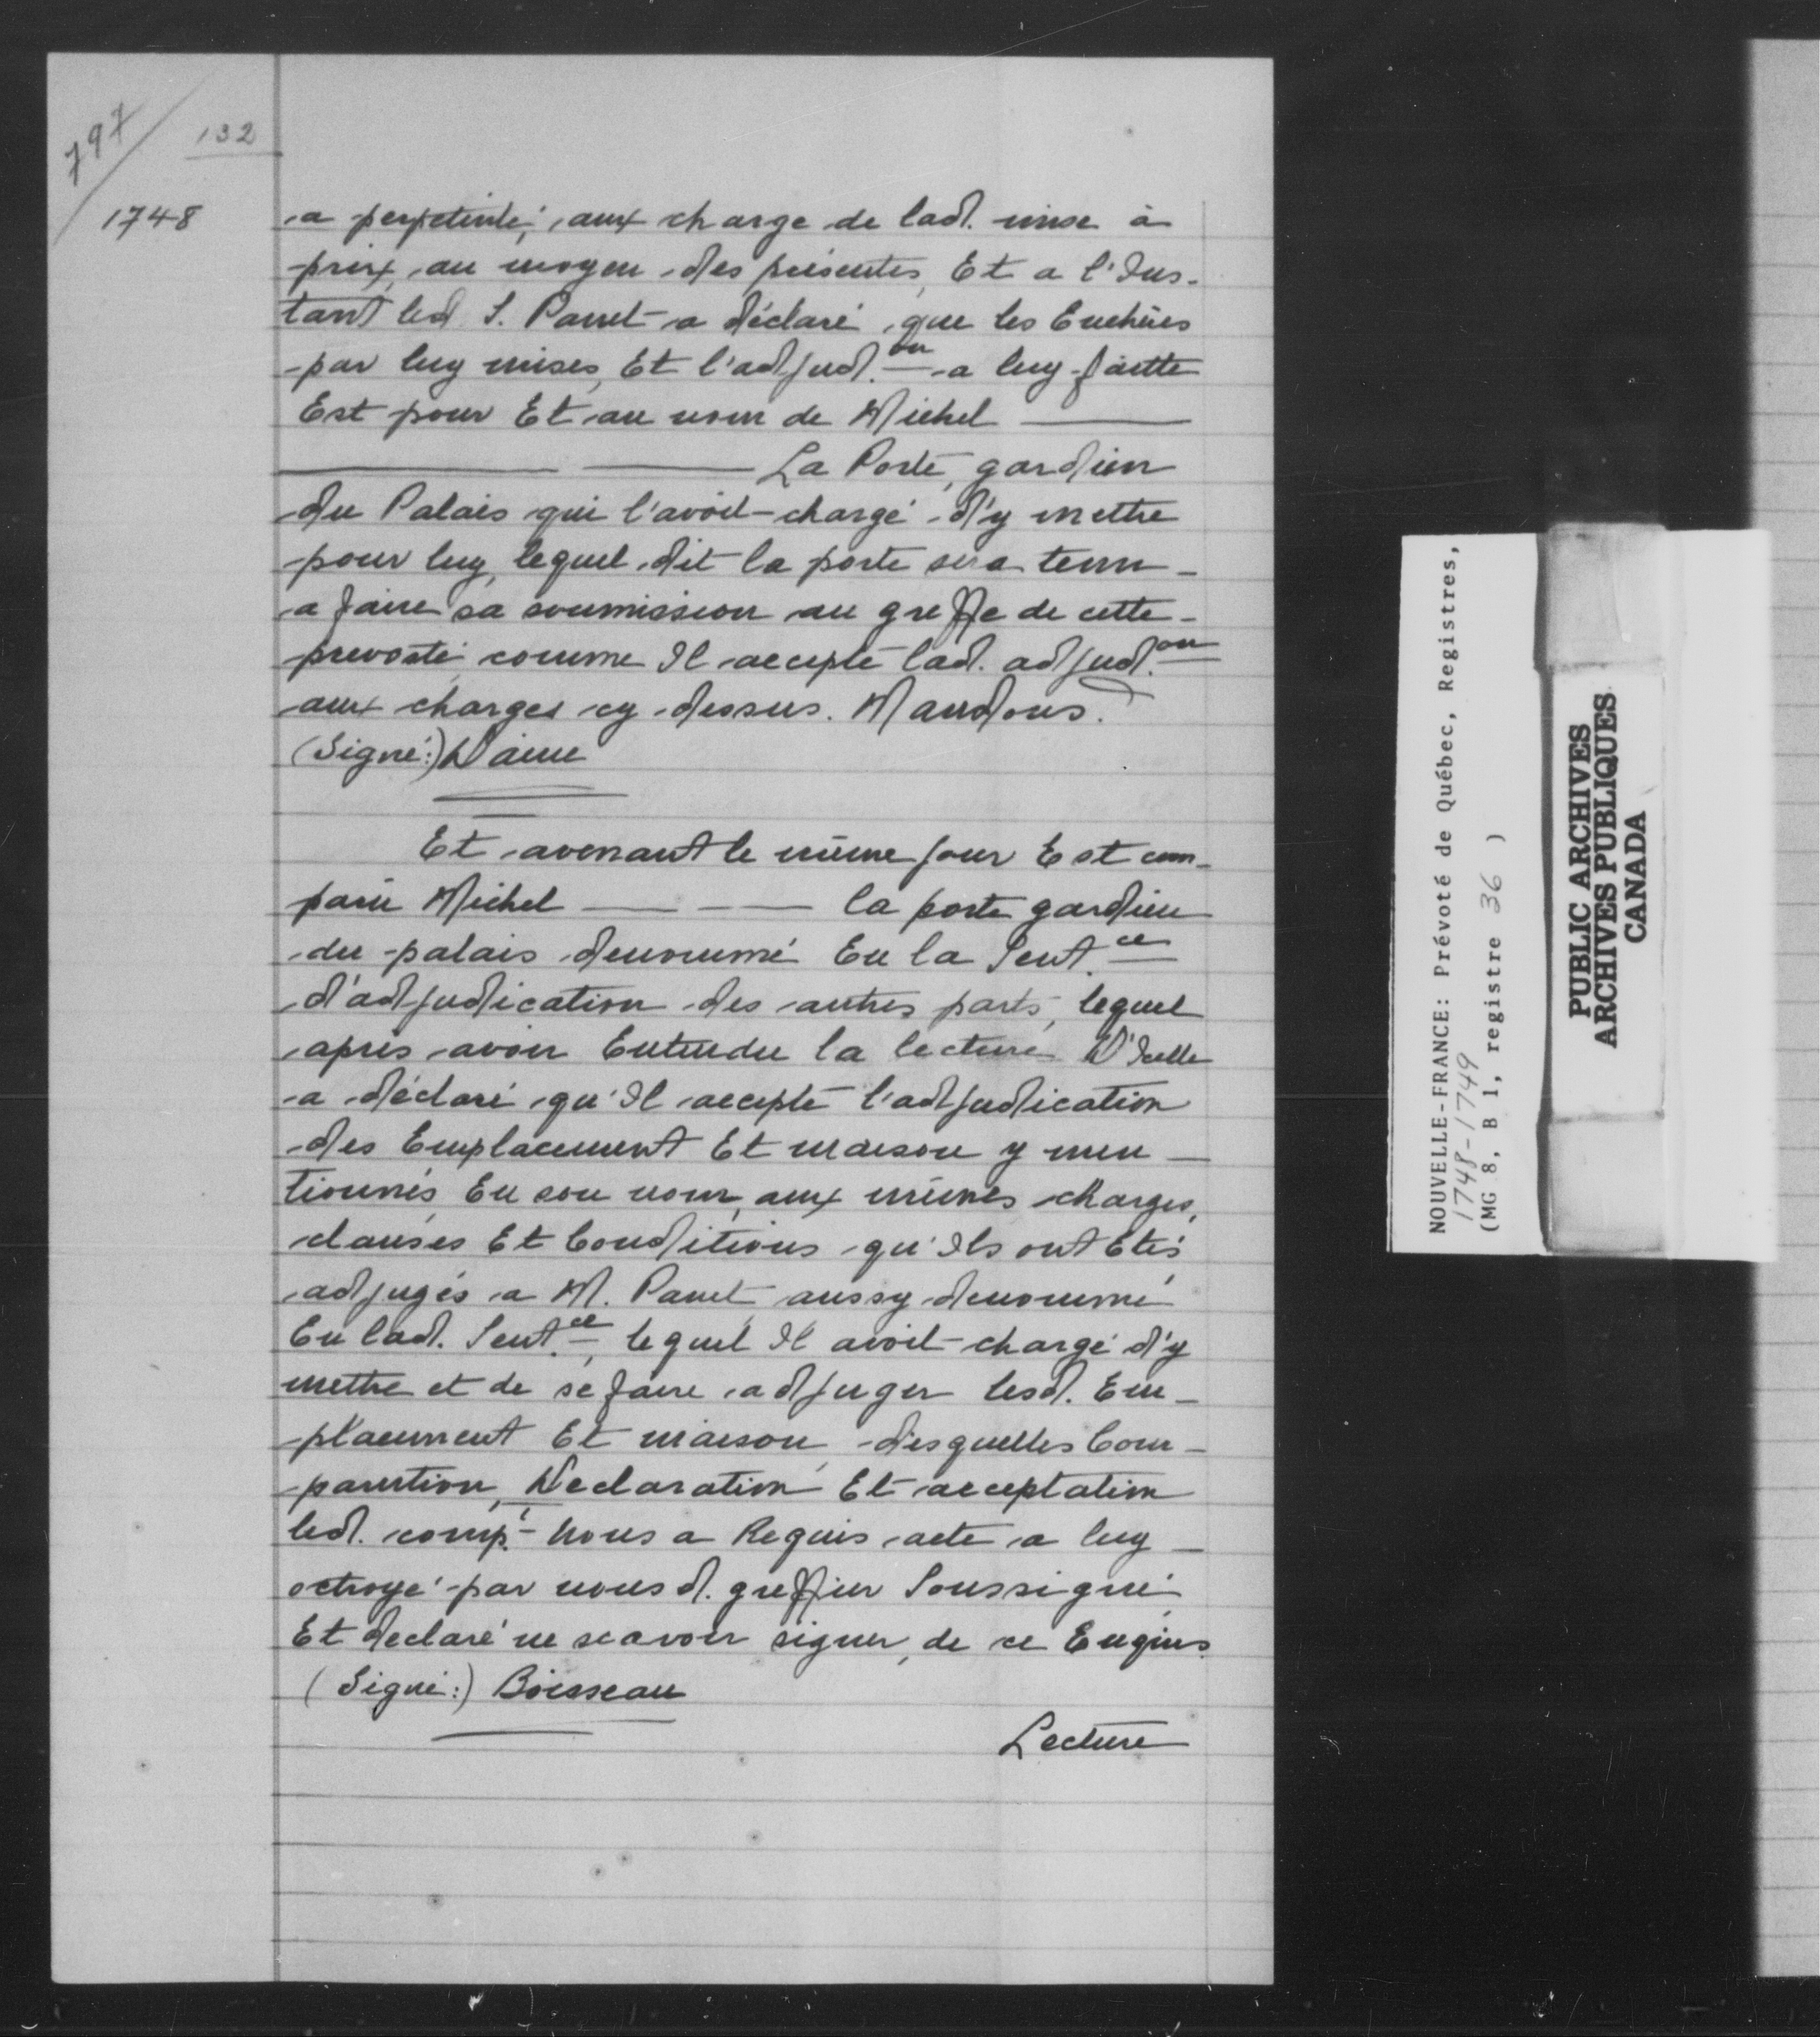 797
132
1748
a perpetinté, aux charge de lad. mise à
prix, au moyen des présentes, Et a l'Ins-
tant led S. Panet a déclaré que les Enchères
par luy mises, Et l'adjud.on a luy faitte
Est pour Et au nom de Michel
La Porte, gardien
du Palais qui l'avoit chargé d'y mettre
pour luy, lequel dit la porte sera tenu
a faire sa soumission au greffe de cette
prevosté comme Il accepte lad. adjud.on
aux charges cy dessus. Mandons.
(Signé:) Daine
Et avenant le même jour Est com-
paru Michel — — la porte gardien
du palais denommé En la Sent.ce
d'adjudication des autres parts, lequel
après avoir Entendu la lecture D'Icelle
a déclaré qu'Il accepte l'adjudication
des Emplacement Et maison y men-
tionnés En son nom, aux mêmes charges,
clauses Et Conditions qu'Ils ont Etés
adjugés a M. Panet aussy denommé
En lad. Sent.ce, lequel Il avoit chargé d'y
mettre et de se faire adjuger lesd. Em-
placement Et maison, desquelles Com-
parution, Declaration Et acceptation
led. comp.t Nous a Requis acte a luy
octroyé par nous d. greffier Soussigné
Et declaré ne scavoir signer, de ce Enquis.
(Signé:) Boisseau
Lecture
NOUVELLE-FRANCE: Prévoté de Québec, Registres,
1748-1749
(MG 8, B 1, registre 36 )
PUBLIC ARCHIVES
ARCHIVES PUBLIQUES
CANADA